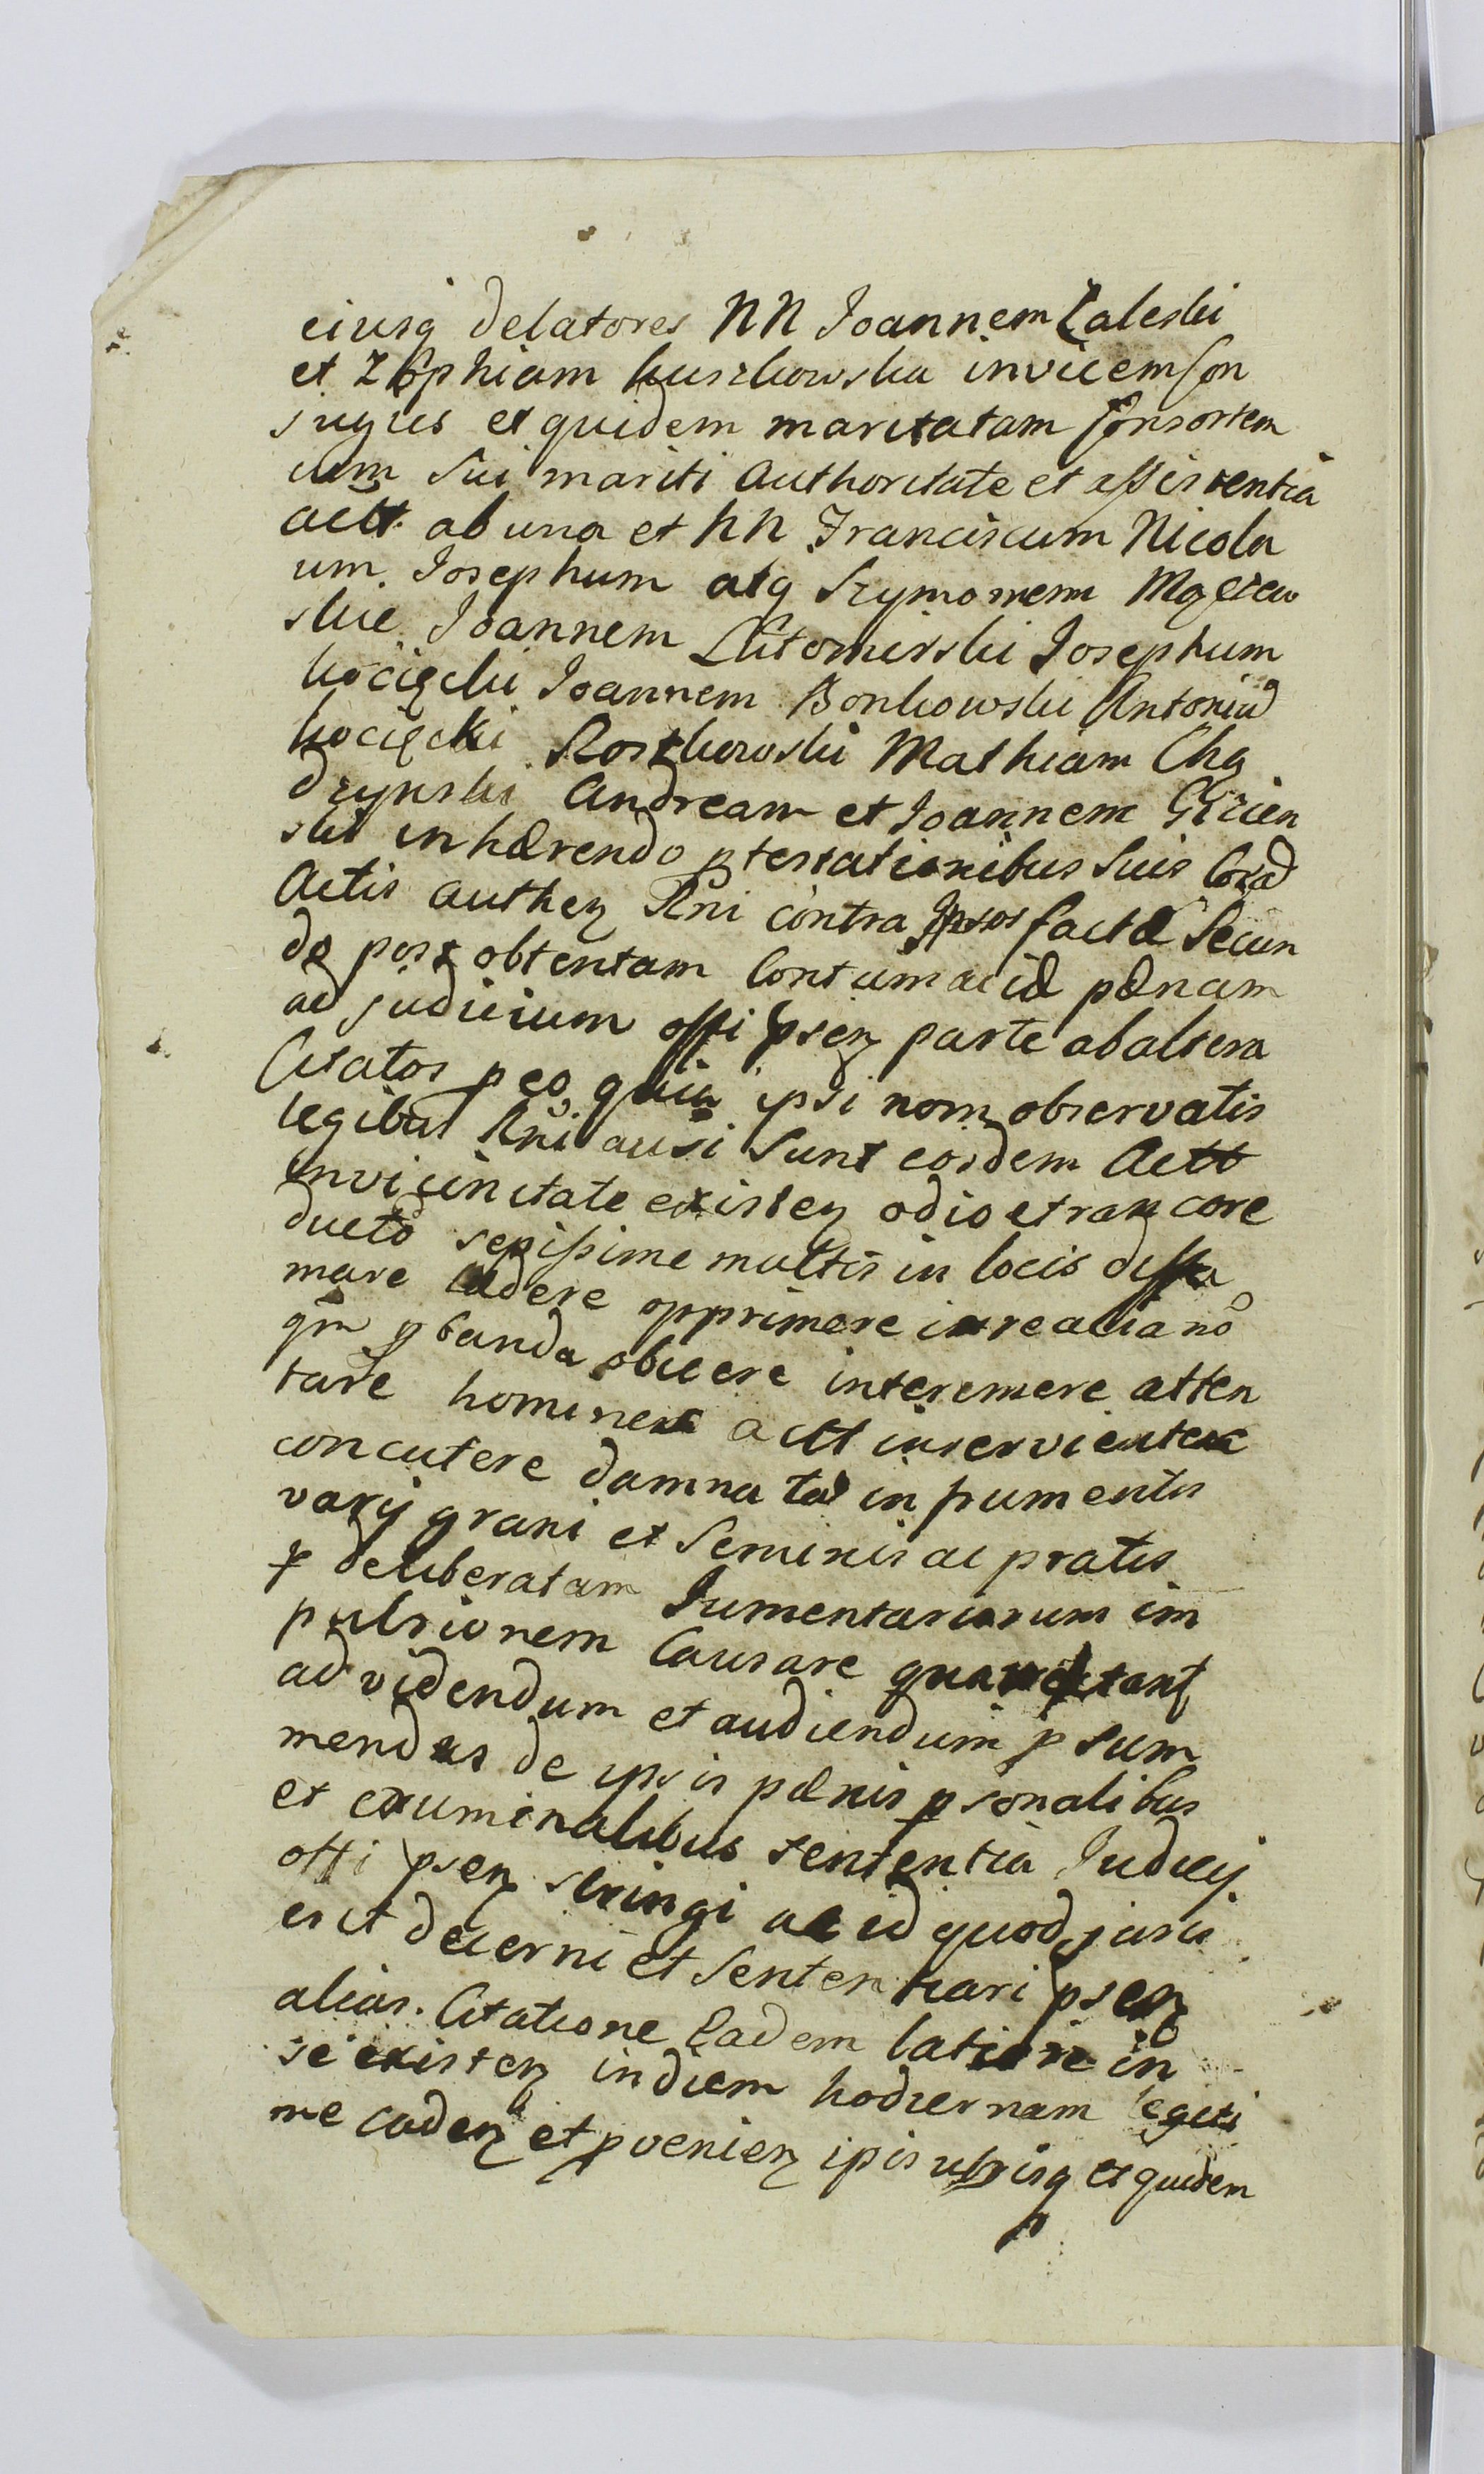 eiusq delatores NN Joannem Zaleski
et Zophiam kuszkowska invicem Con
juges et quidem maritatam Consortem
cum Sui mariti Authoritate et assistentia
actt. ab una et NN Franciscum Nicola
um. Josephum atq Szymonem
skie Joannem Lutomirski Josephum
kocięcki Joannem Bonkowski Antoniū
kocięcki Rostkowski Mathiam Chą
dzynski Andream et Joannem Gizien
ski inhærendo ptestationibus Suis Corā
Actis authen Rni contra Ipsos factæ Secun
do post obtentam Contumaciæ pænam
ad judicium offi psen parte ab altera
Citatos p eo quia ipsi nom observatis
legibus Rni ausi Sunt eosdem Actt
in vicinitate existen odio et rancore
ducto sepissime multis in locis diffa
mare lædere opprimere irrealia nō
qm pbanda obiicere interemere atten
tare homines actt inservientes
concutere damna in frumentis
varij grani et Seminis ac pratis
p deliberatam Jumentariorum im
pulsionem Causare
ad videndum et audiendum p sum
mendas de ipsis pænis psonalibus
et criminalibus sententia Judicij
offi psen stringi ac id quod juris
erit decerni et Sententiari psen
alias. Citatione Eadem latiore in
se existen in diem hodiernam legiti
me caden et pvenien ipis utrisq et quidem
p